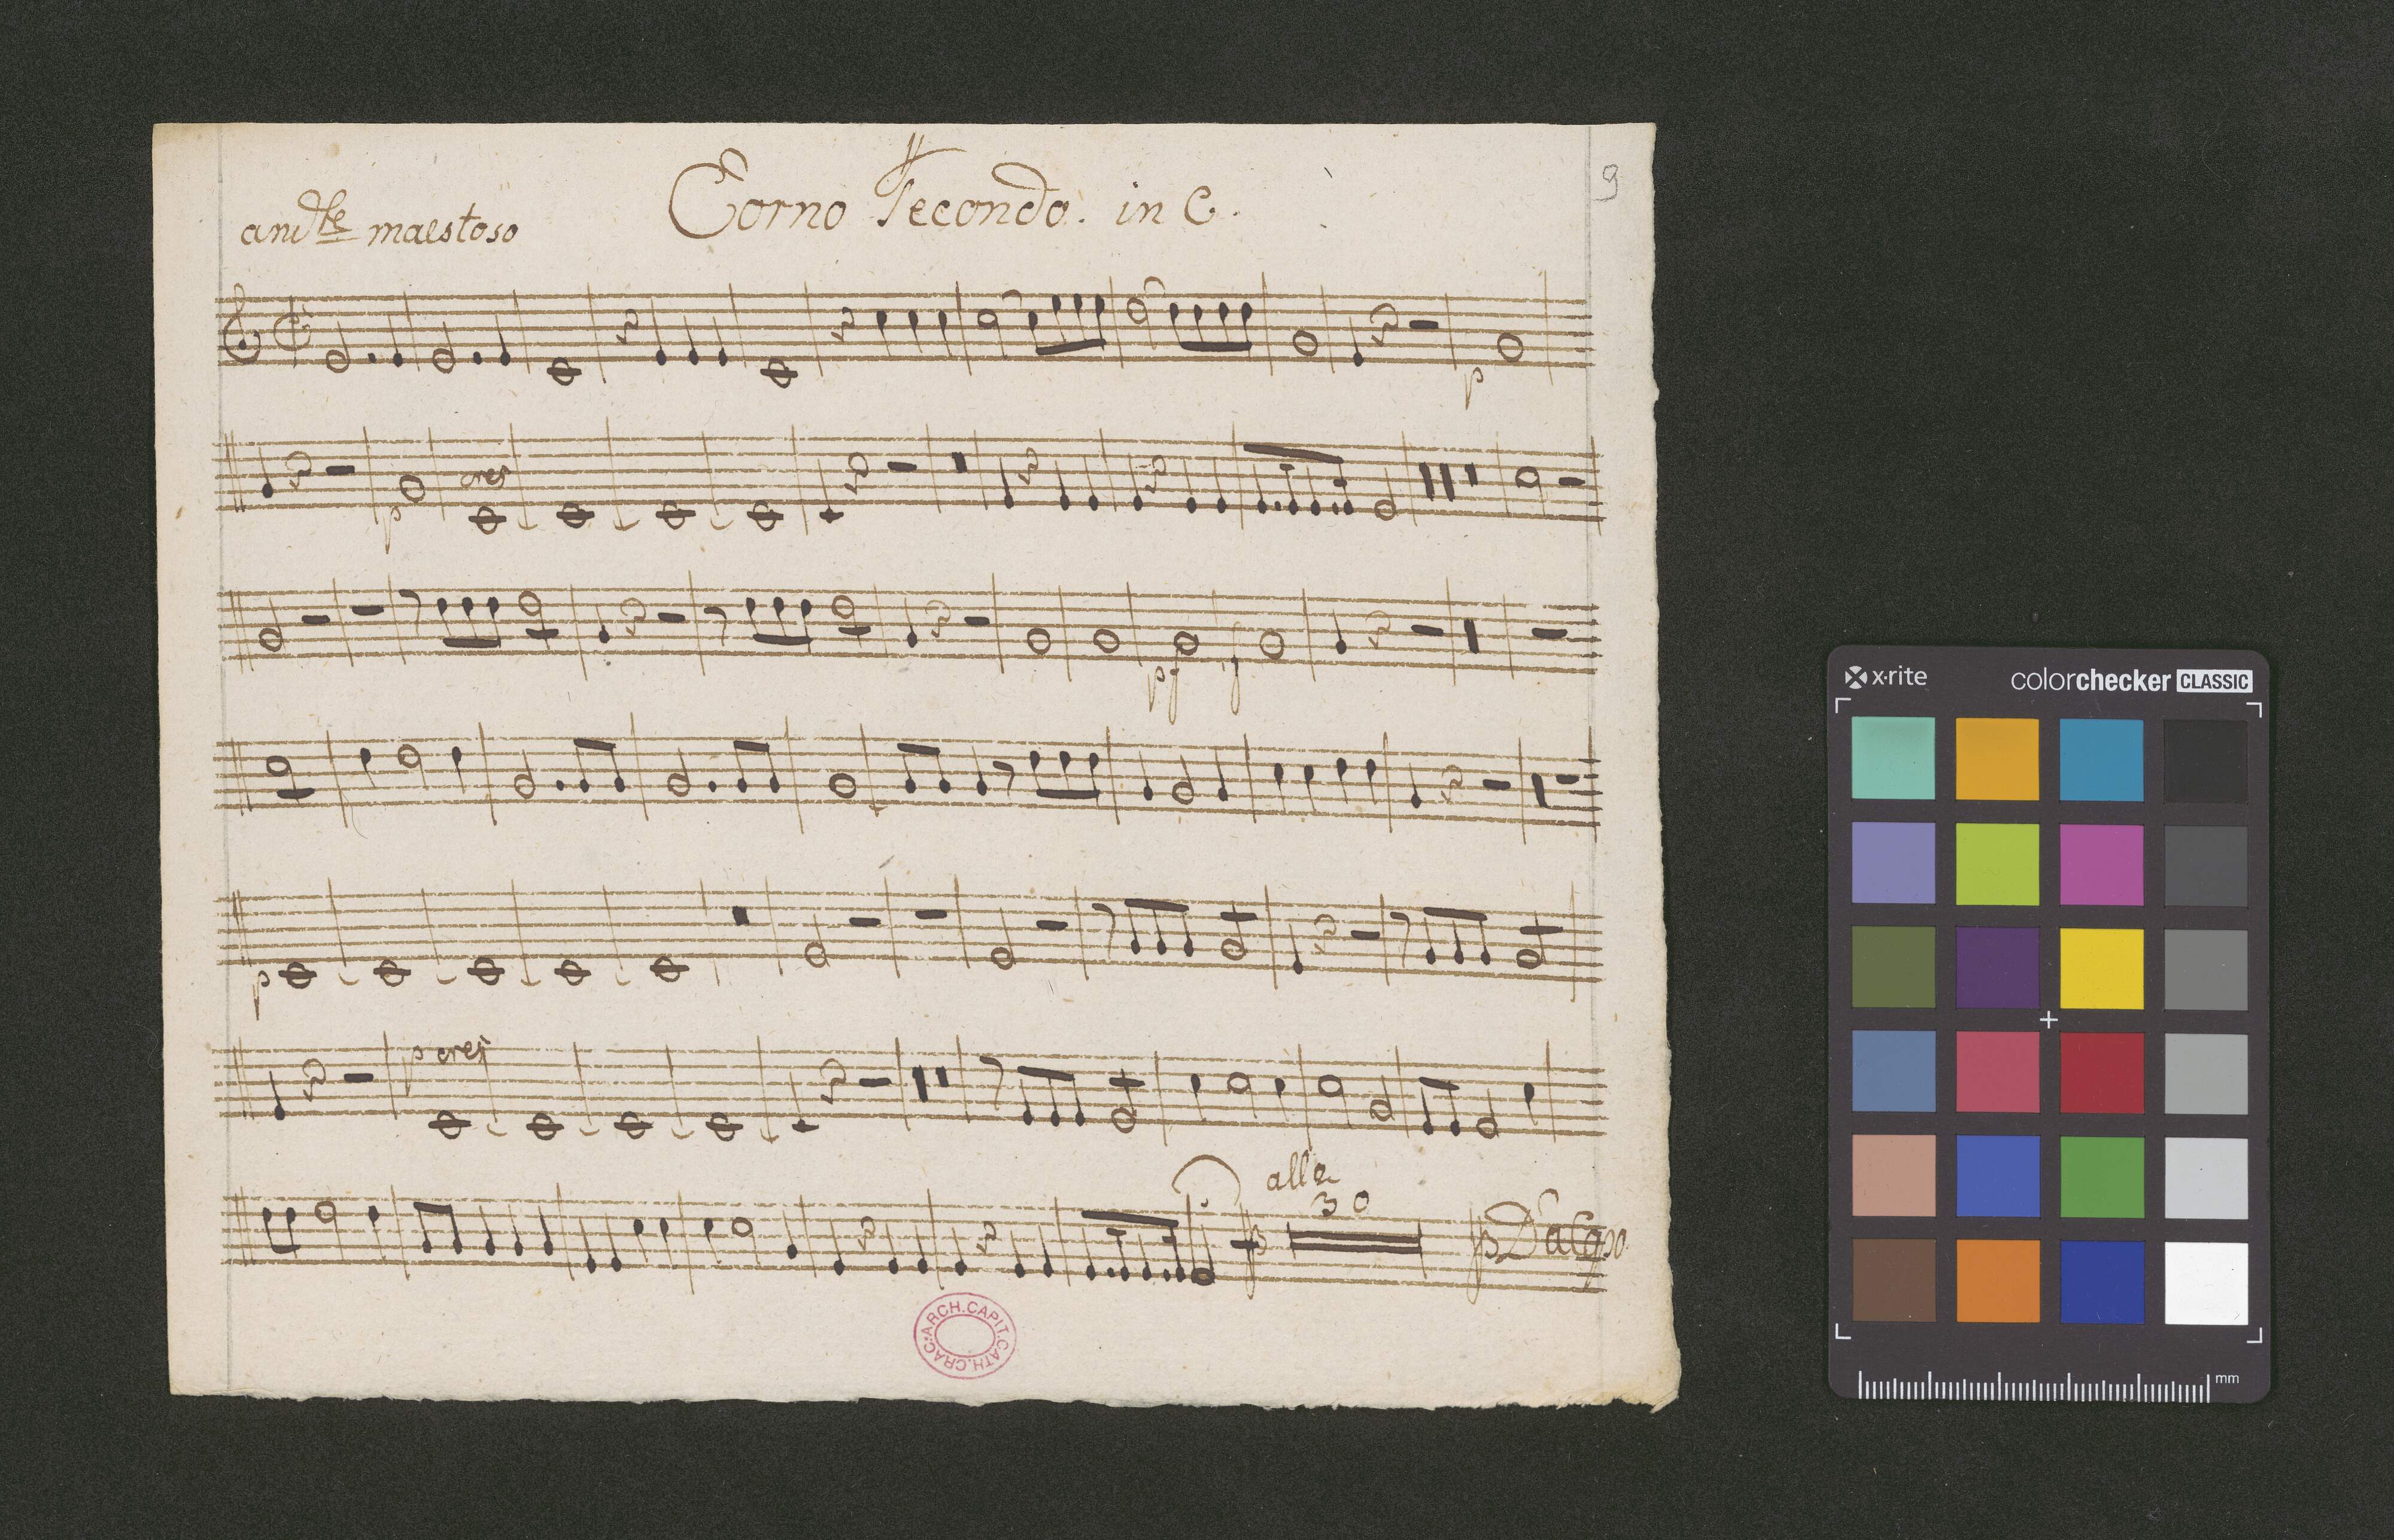 9
Corno Secondo. in C.
andte maestoso
p
p cres
pf f
p
p cres
alle
30
Da Capo
ARCH.CAPIT.CATH.CRAC.
x-rite colorchecker CLASSIC
mm